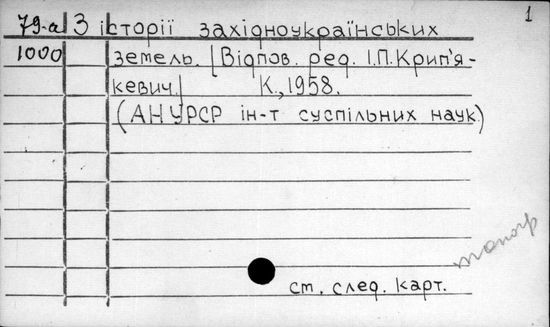 1
79-а З історії західноукраїнських
1000 земель. [Відпов. ред. І.П.Крип'я-
кевич.] К., 1958.
(АН УРСР ін-т суспільних наук.)
топогр
ст. след. карт.